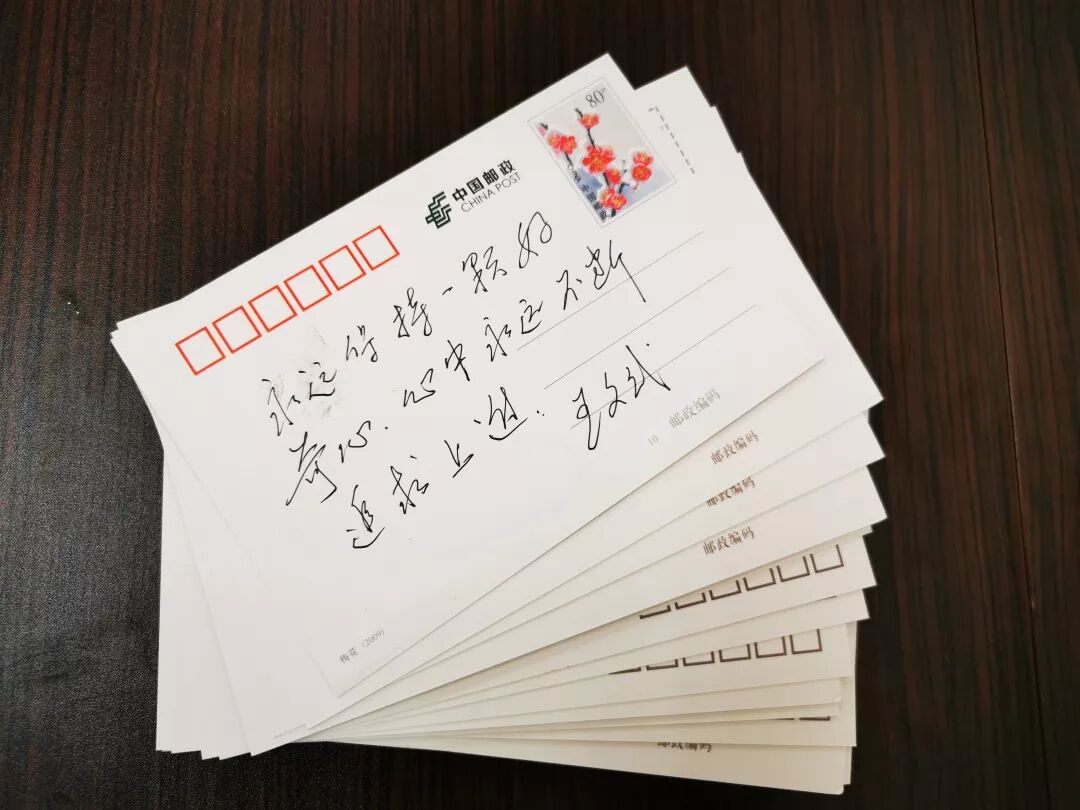 80分
中国邮政
CHINA POST
永远保持一颗好
奇心.心中永远不断
追求上进.王文斌
10 邮政编码
邮政编码
邮政编码
邮政编码
邮政编码
梅花(2009)